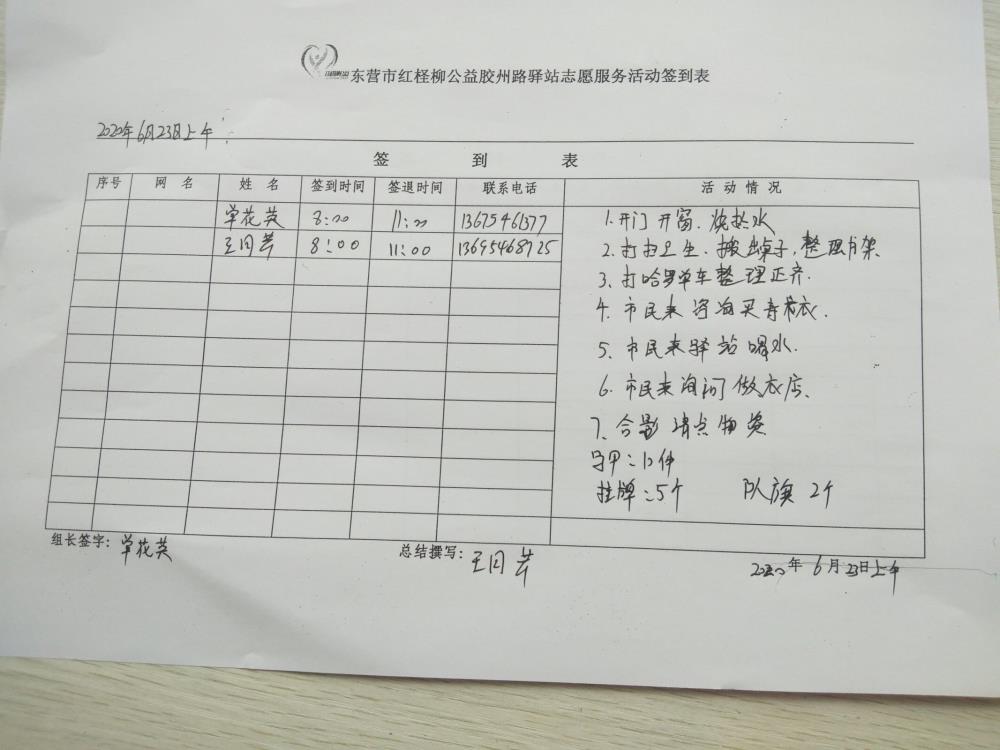 东营市红柽柳公益胶州路驿站志愿服务活动签到表
2020年6月23日上午
签 到 表
序号 网 名 姓 名 签到时间 签退时间 联系电话 活 动 情 况
单花英 8:00 11:00 13675461377
王月芹 8:00 11:00 13695468925
1.开门开窗.烧热水
2.打扫卫生.搬出桌子,整理书架.
3.打哈罗单车整理正齐.
4.市民来咨询买寿衣.
5.市民来驿站喝水.
6.市民来询问做衣店.
7.合影 清点物资
马甲:12件
挂牌:5个 队旗 2个
组长签字:单花英 总结撰写:王月芹 2020年6月23日上午